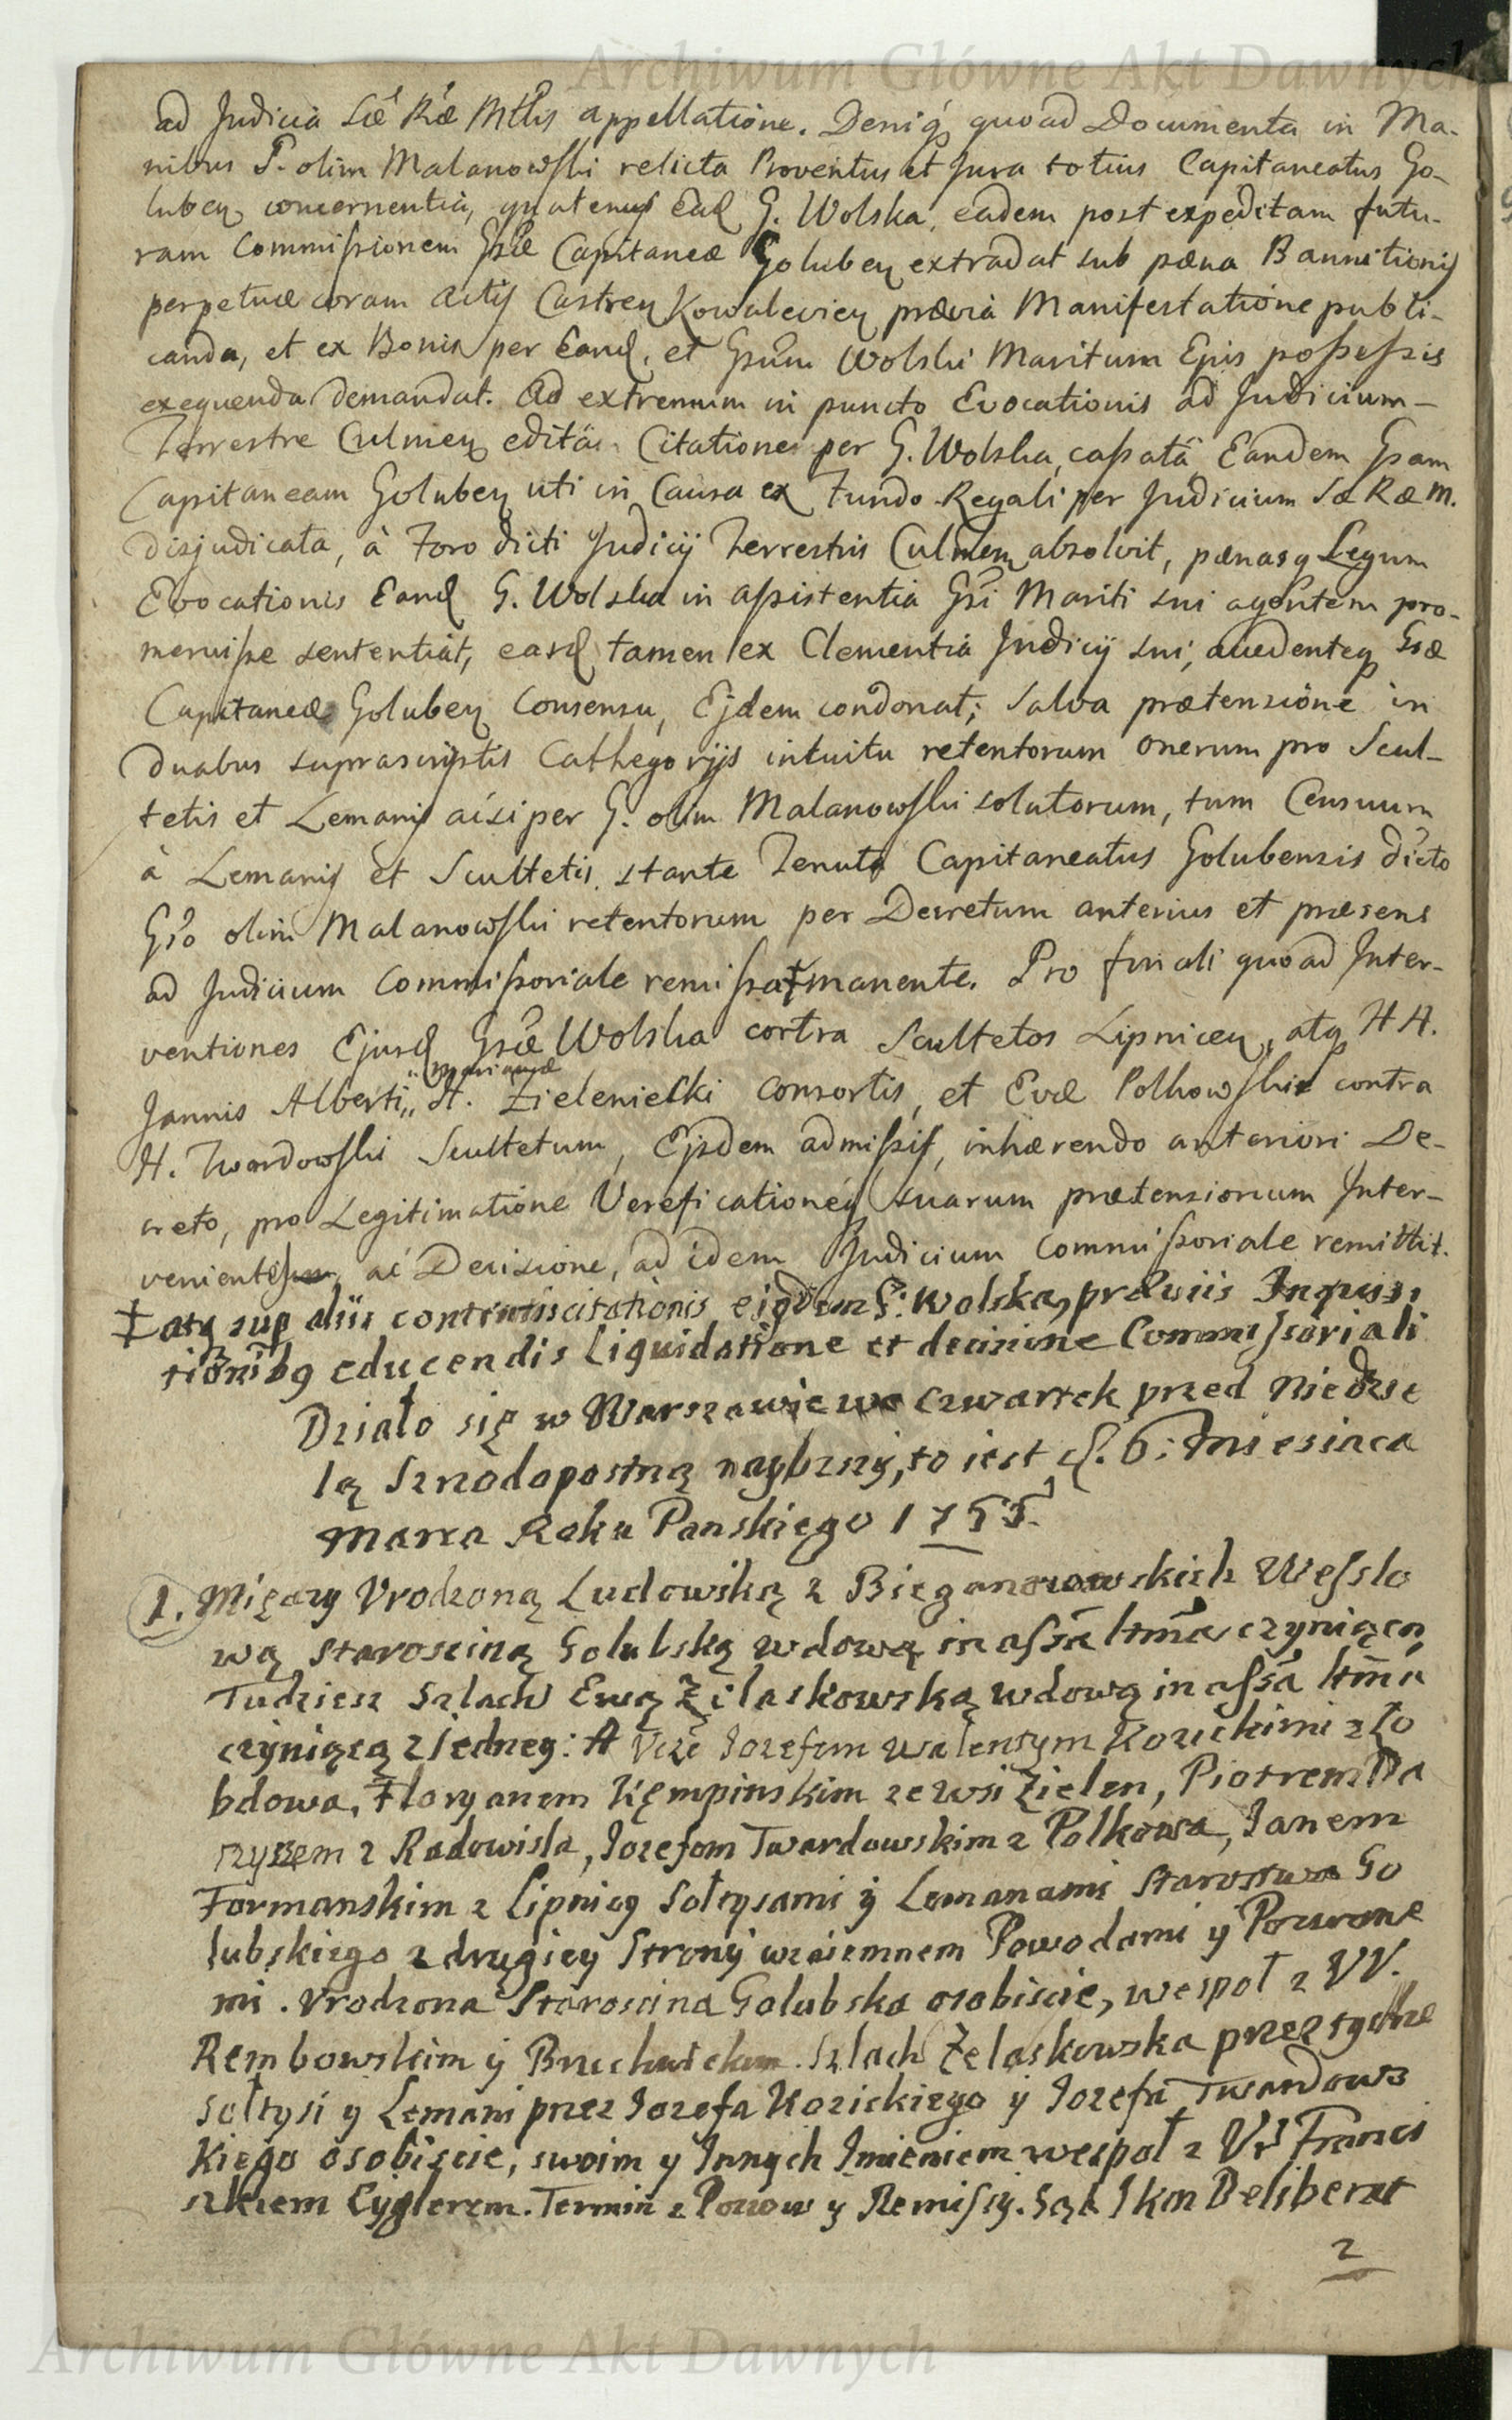 Archiwum Główne Akt Dawnych
ad Judicia Sæ Ræ Mttis appellatione. Deniq quoad Documenta in Ma-
nibus P. olim Malanowski relicta Proventus et Jura totius Capitaneatus Go-
luben concernentia, quatenus Ead G. Wolska, eadem post expeditam futu-
ram Commissionem Gsæ Capitaneæ Goluben extradat sub pæna Bannitionis
perpetuæ coram actis Castren Kowalevien prævia Manifestatione publi-
canda, et ex Bonis per Eand. et Gsum Wolski Maritum Ejus possessis
exequenda demandat. Ad extremum in puncto Evocationis ad Judicium
Terrestre Culmen edita Citatione per G. Wolska, cassatâ Eandem Gsam
Capitaneam Goluben uti in Causa ex Fundo Regali per Judicium Sæ Ræ M.
disjudicata, à Foro dicti Judicij Terrestris Culmen absolvit, pænasq Legum
Evocationis Eand G. Wolska in assistentia Gsi Mariti sui agentem pro-
meruisse sententiat, easd tamen ex Clementia Judicij sui, accedenteq Gsæ
Capitaneæ Goluben Consensu, Ejdem condonat; Salva prætensione in
duabus suprascriptis Cathegorijs intuitu retentorum onerum pro Scul-
tetis et Lemanis per G. olim Malanowski solutorum, tum Censuum
à Lemanis et Scultetis stante Tenuta Capitaneatus Golubensis dicto
Gso olim Malanowski retentorum per Decretum anterius et præsens
ad Judicium Commissoriale remissa ‡ manente. Pro finali quoad Inter-
ventiones Ejusd Gsæ Wolska contra Scultetos Lipnicen, atq HH.
Jannis Alberti, Mariannæ H. Zieleniecki Consortis, et Evæ Polkowskie contra
H. Twardowski Scultetum, Ejsdem admissis, inhærendo anteriori De-
creto, pro Legitimatione Vereficationeq suarum prætensionum Inter-
venient, ac Decisione, ad idem Judicium Commissoriale remittit.
‡ atq sup aliis contentis citationis eiqdem G: Wolska, præviis Inquisi
tionibq educendis liquidatione et decisione Commissoriali
Działo się w Warszawie we Czwartek przed Niedzie
lą Szrodopostną naybliszy, to iest d. 6: Miesiąca
Marca Roku Panskiego 1755.
1. Między Vrodzoną Ludowiką z Bieganowskich Wesslo
wą Starosciną Golubską wdową in assa ltma czyniącą
Tudziesz Szlach Ewą Żelaskowską wdową in assa ltma
czyniącą z iedney: A Józefem Walentym Kozickimi z Ło
bdowa, Floryanem Kępinskim ze wsi Zielen, Piotrem Ma
rzyszem z Radowiska, Iozefom Twardowskim z Polkowa, Ianem
Formanskim z Lipnicy Sołtysami y Lemanami Starostwa Go
lubskiego z drugiey Strony wzaiemnem Powodami y Pozwane
mi. Vrodzona Staroscina Golubska osobiscie, wespoł z VV.
Rembowskim y . Szlach Żelaskowska przez tychze
Sołtysi y Lemani przez Iozefa Kozickiego y Iozefa Twardows
kiego osobiscie, swoim y Innych Imieniem wespoł z Vr Franci
szkiem Cyglerem. Termin z Pozow y Remissy. Sąd Ikm Deliberat
2
Archiwum Główne Akt Dawnych